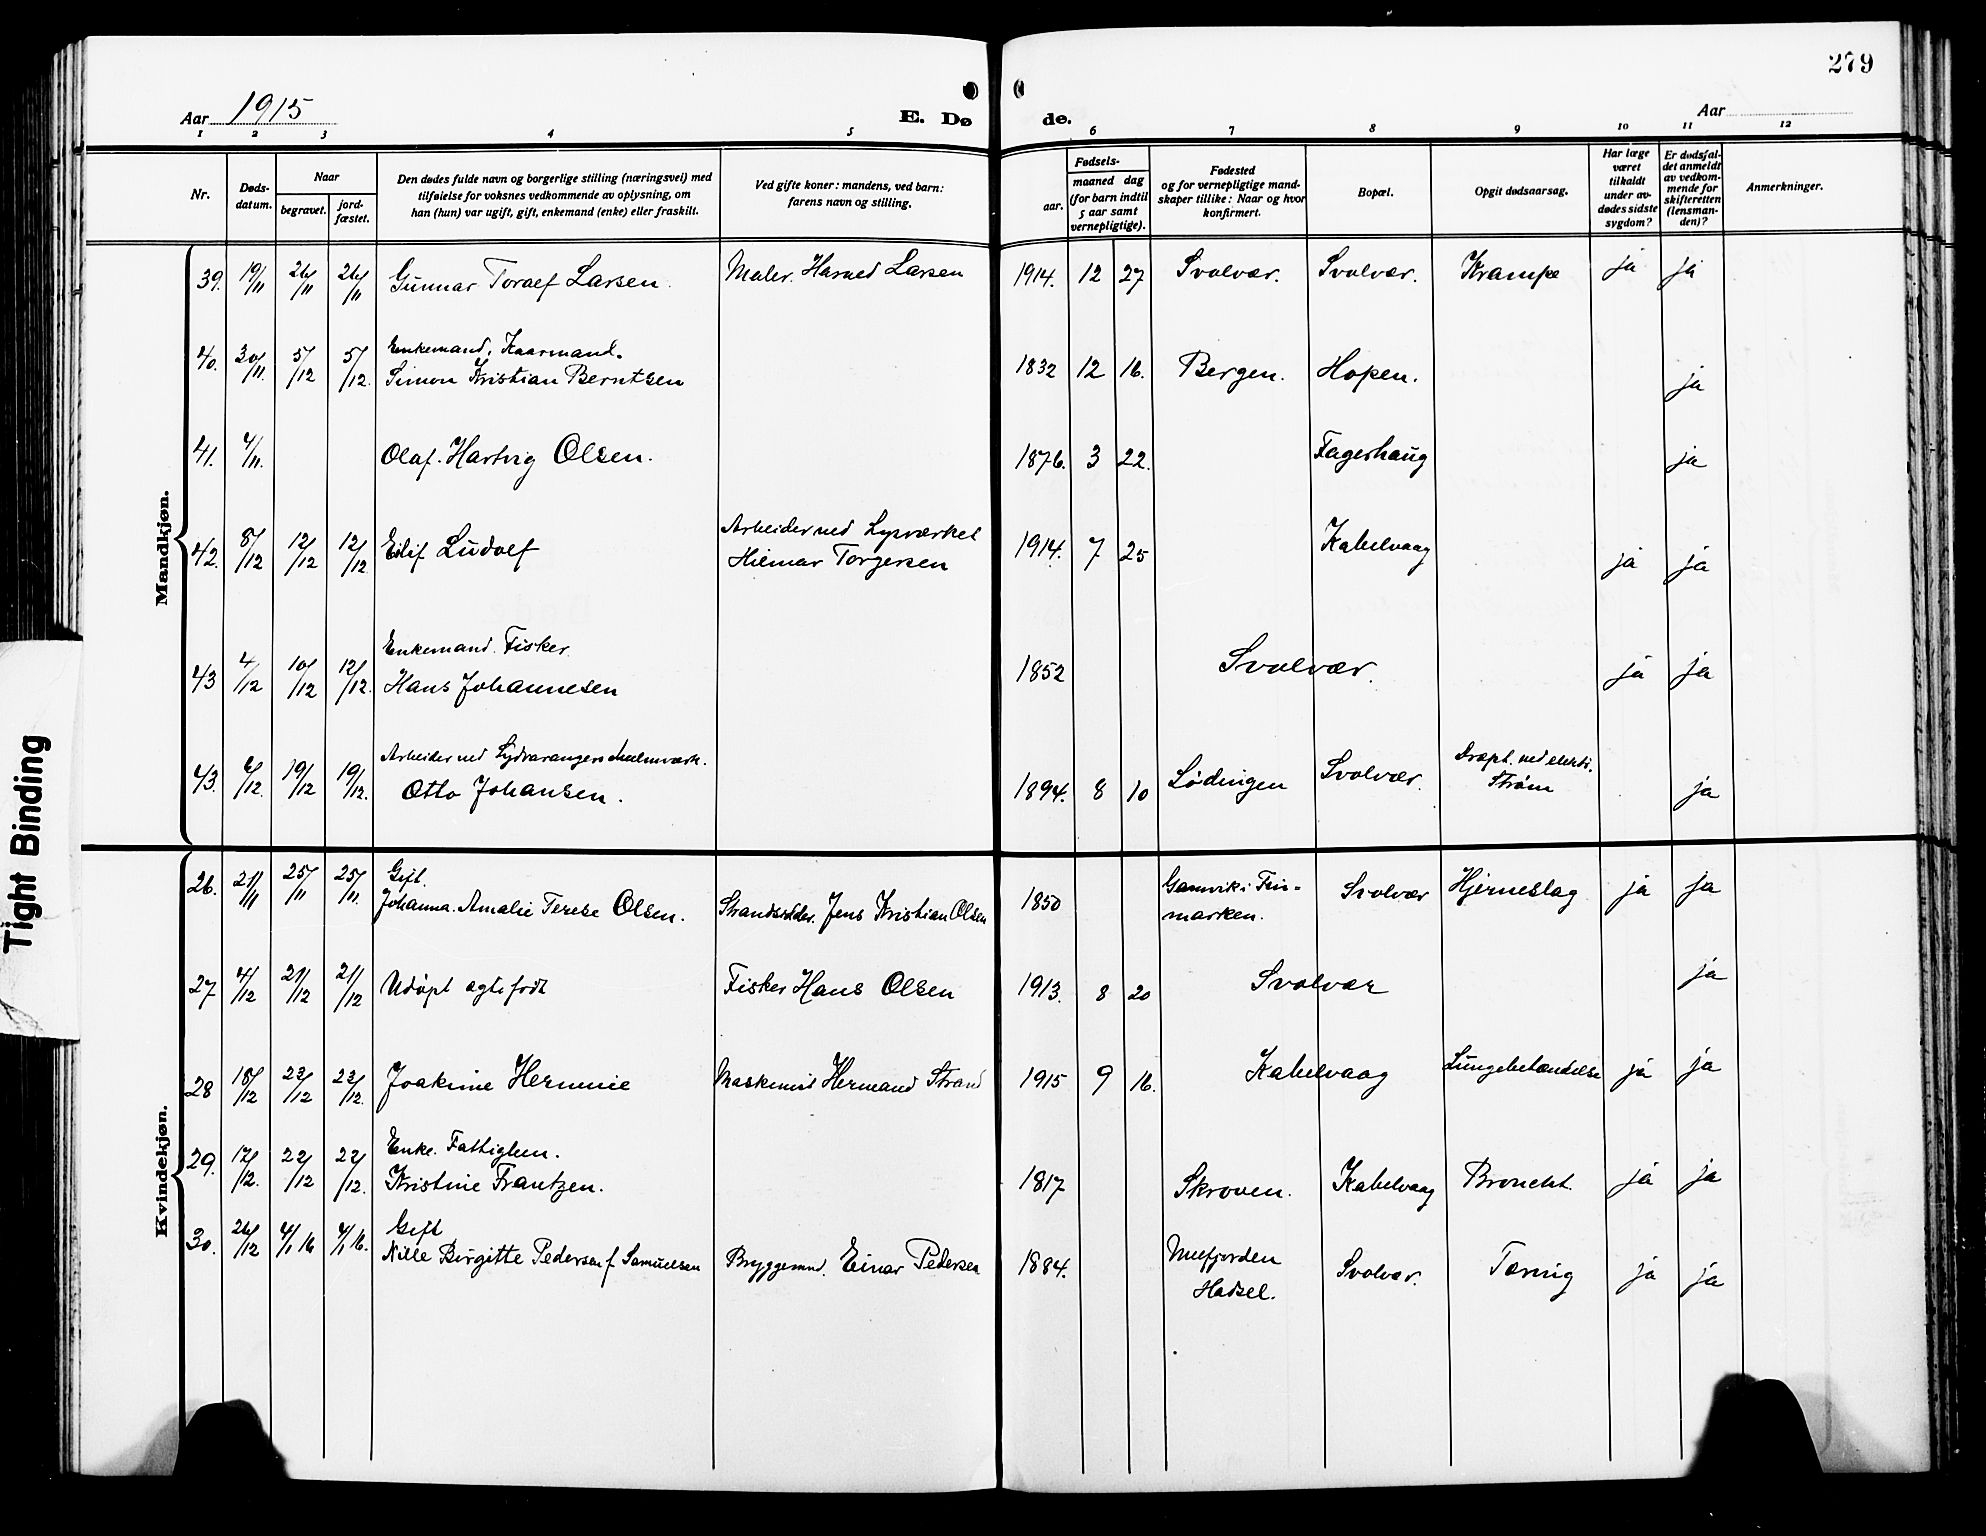 279
Aar 1915
E. Dø de.
Aar
1 2 3 4 5 6 7 8 9 10 11 12
Nr.
Døds-
datum.
Naar
begravet.
jord-
fæstet.
Den dødes fulde navn og borgerlige stilling (næringsvei) med
tilføielse for voksnes vedkommende av oplysning, om
han (hun) var ugift, gift, enkemand (enke) eller fraskilt.
Ved gifte koner: mandens, ved barn:
farens navn og stilling.
Fødsels-
aar.
maaned dag
(for barn indtil
5 aar samt
vernepligtige).
Fødested
og for vernepligtige mand-
skaper tillike: Naar og hvor
konfirmert.
Bopæl.
Opgit dødsaarsag.
Har læge
været
tilkaldt
under av-
dødes sidste
sygdom?
Er dødsfal-
det anmeldt
av vedkom-
mende for
skifteretten
(lensman-
den)?
Anmerkninger.
Mandkjøn.
39. 19/11 26/11 26/11 Gunnar Toralf Larsen. Maler. Larsen 1914. 12 27 Svolvær. Svolvær. Krampe ja ja
Enkemand. Kaarmand.
40. 30/11. 5/12 5/12. Simon Kristian Berntsen 1832 12 16. Bergen. Hopen. ja
41. 4/11. Olaf. Hartvig Olsen. 1876. 3 22. Fagerhaug ja
Arbeider ved Lysværket
42. 8/12 12/12 12/12. Eilif Ludolf Hilmar Torgersen 1914. 7 25 Kabelvaag ja ja
Enkemand. Fisker.
43 4/12 10/12 12/12. Hans Johannesen 1852 Svolvær. ja ja
Arbeider ved Sydvarangers Malmværk.
43. 6/12. 19/12 19/12. Otto Johansen. 1894. 8 10 Lødingen Svolvær. Dræpt. ved elektr.
Strøm ja
Kvindekjøn.
Gift.
26. 21/11 25/11 25/11. Johanna. Amalie Terese Olsen. Strandsidder. Jens Kristian Olsen 1850 Gamvik i Fin-
marken. Svolvær Hjerneslag ja ja
27 4/12 21/12 21/12 Udøpt ægtefødt Fisker Hans Olsen 1913. 8 20 Svolvær ja
28 18/12 23/12 23/12. Joakime Hermine Maskinist Hermand Strand 1915 9 16. Kabelvaag Lungebetændelse ja ja
Enke. Fattiglem.
29. 17/12. 22/12 22/12. Kristine Frantzen. 1817 Skroven. Kabelvaag Bronchit. ja ja
Gift
30. 26/12 4/1 16 4/1 16. Nille Birgitte Pedersen f. Samuelsen Bryggemnd. Einar Pedersen 1884.
Hadsel. Svolvær. Tæring ja ja
Tight Binding